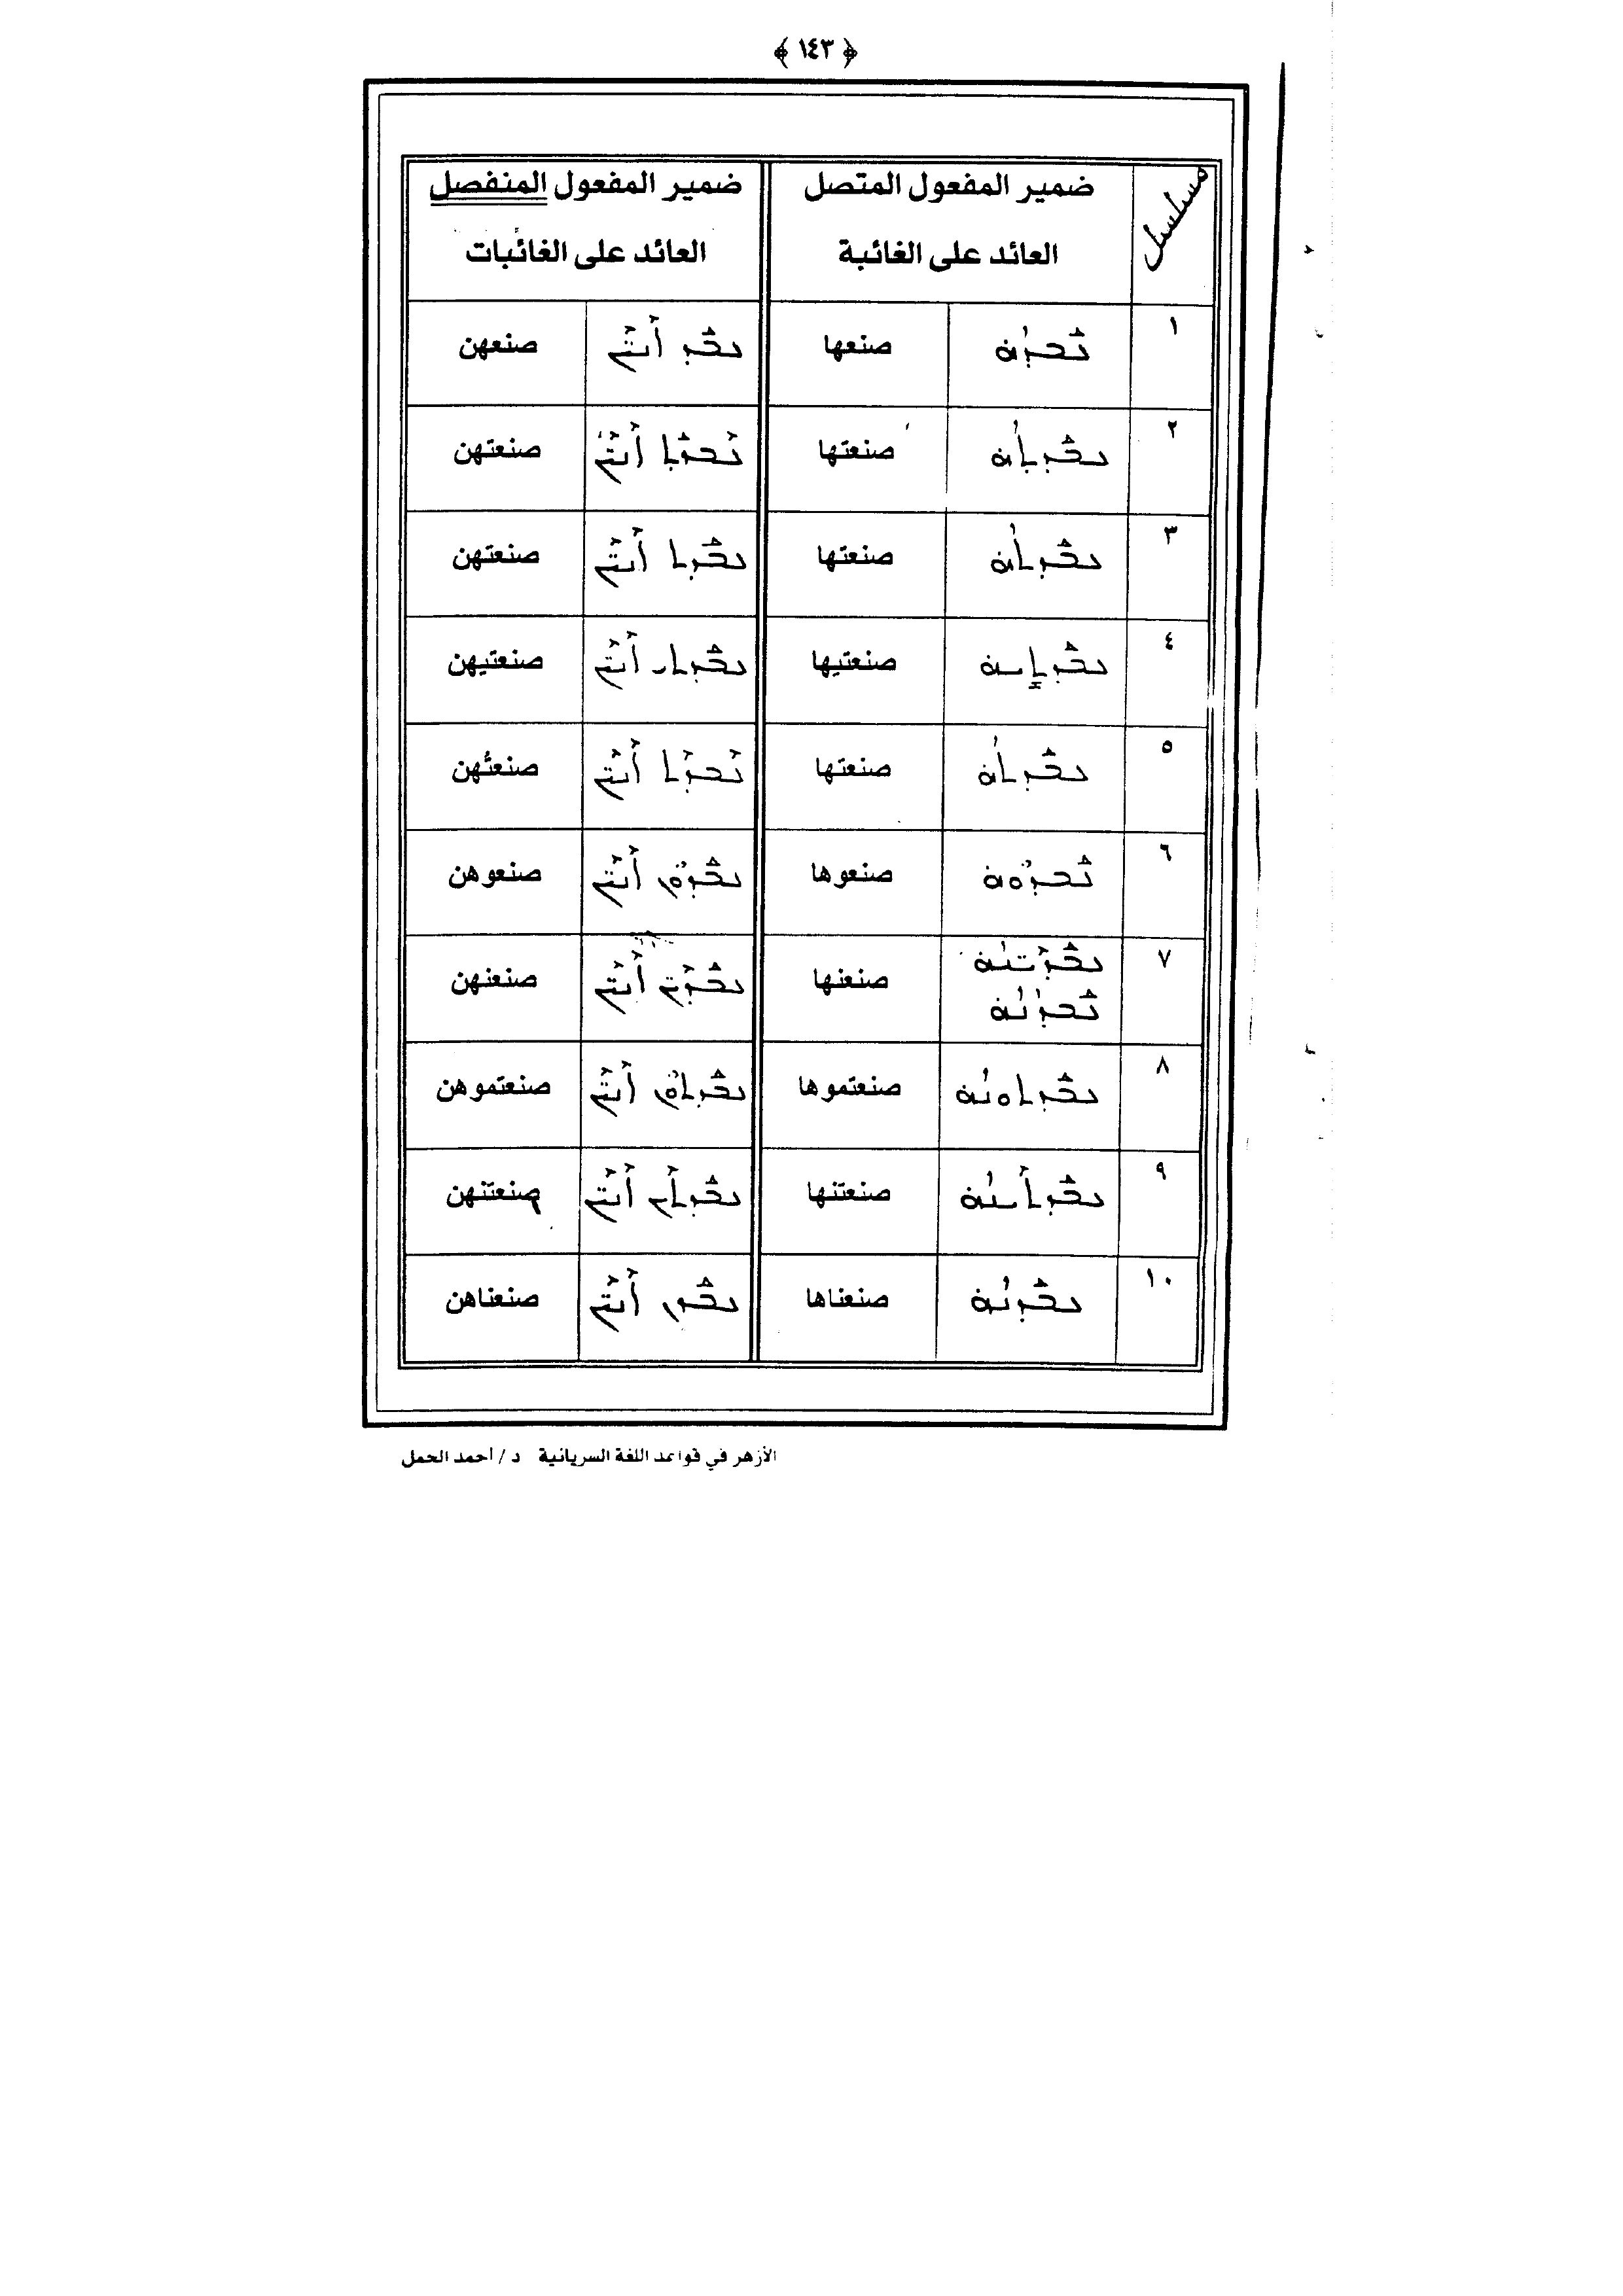 ﴿ ١٤٣ ﴾
مسلسل ضمير المفعول المتصل ضمير المفعول المنفصل
العائد على الغائبة العائد على الغائبات
١ ܥܰܒܕܳܗ صنعها ܥܒܰܕ ܐܶܢܶܝܢ صنعهن
٢ ܥܒܰܕܬܳܗ صنعتها ܥܶܒܕܰܬ ܐܶܢܶܝܢ صنعتهن
٣ ܥܒܰܕܬܳܗ صنعتها ܥܒܰܕܬ ܐܶܢܶܝܢ صنعتهن
٤ ܥܒܰܕܬܺܝܗ صنعتيها ܥܒܰܕܬܝ ܐܶܢܶܝܢ صنعتيهن
٥ ܥܒܰܕܬܳܗ صنعتها ܥܶܒܕܶܬ ܐܶܢܶܝܢ صنعتُهن
٦ ܥܰܒܕܽܘܗ صنعوها ܥܒܰܕܘܢ ܐܶܢܶܝܢ صنعوهن
٧ ܥܒܰܕܶܝܢܳܗ صنعنها ܥܒܰܕܶܝܢ ܐܶܢܶܝܢ صنعنهن
ܥܰܒܕܳܢܳܗ
٨ ܥܒܰܕܬܘܢܳܗ صنعتموها ܥܒܰܕܬܽܘܢ ܐܶܢܶܝܢ صنعتموهن
٩ ܥܒܰܕܬܶܝܢܳܗ صنعتنها ܥܒܰܕܬܶܝܢ ܐܶܢܶܝܢ صنعتنهن
١٠ ܥܒܰܕܢܳܗ صنعناها ܥܒܰܕܢ ܐܶܢܶܝܢ صنعناهن
الأزهر في قواعد اللغة السريانية د/ أحمد الجمل